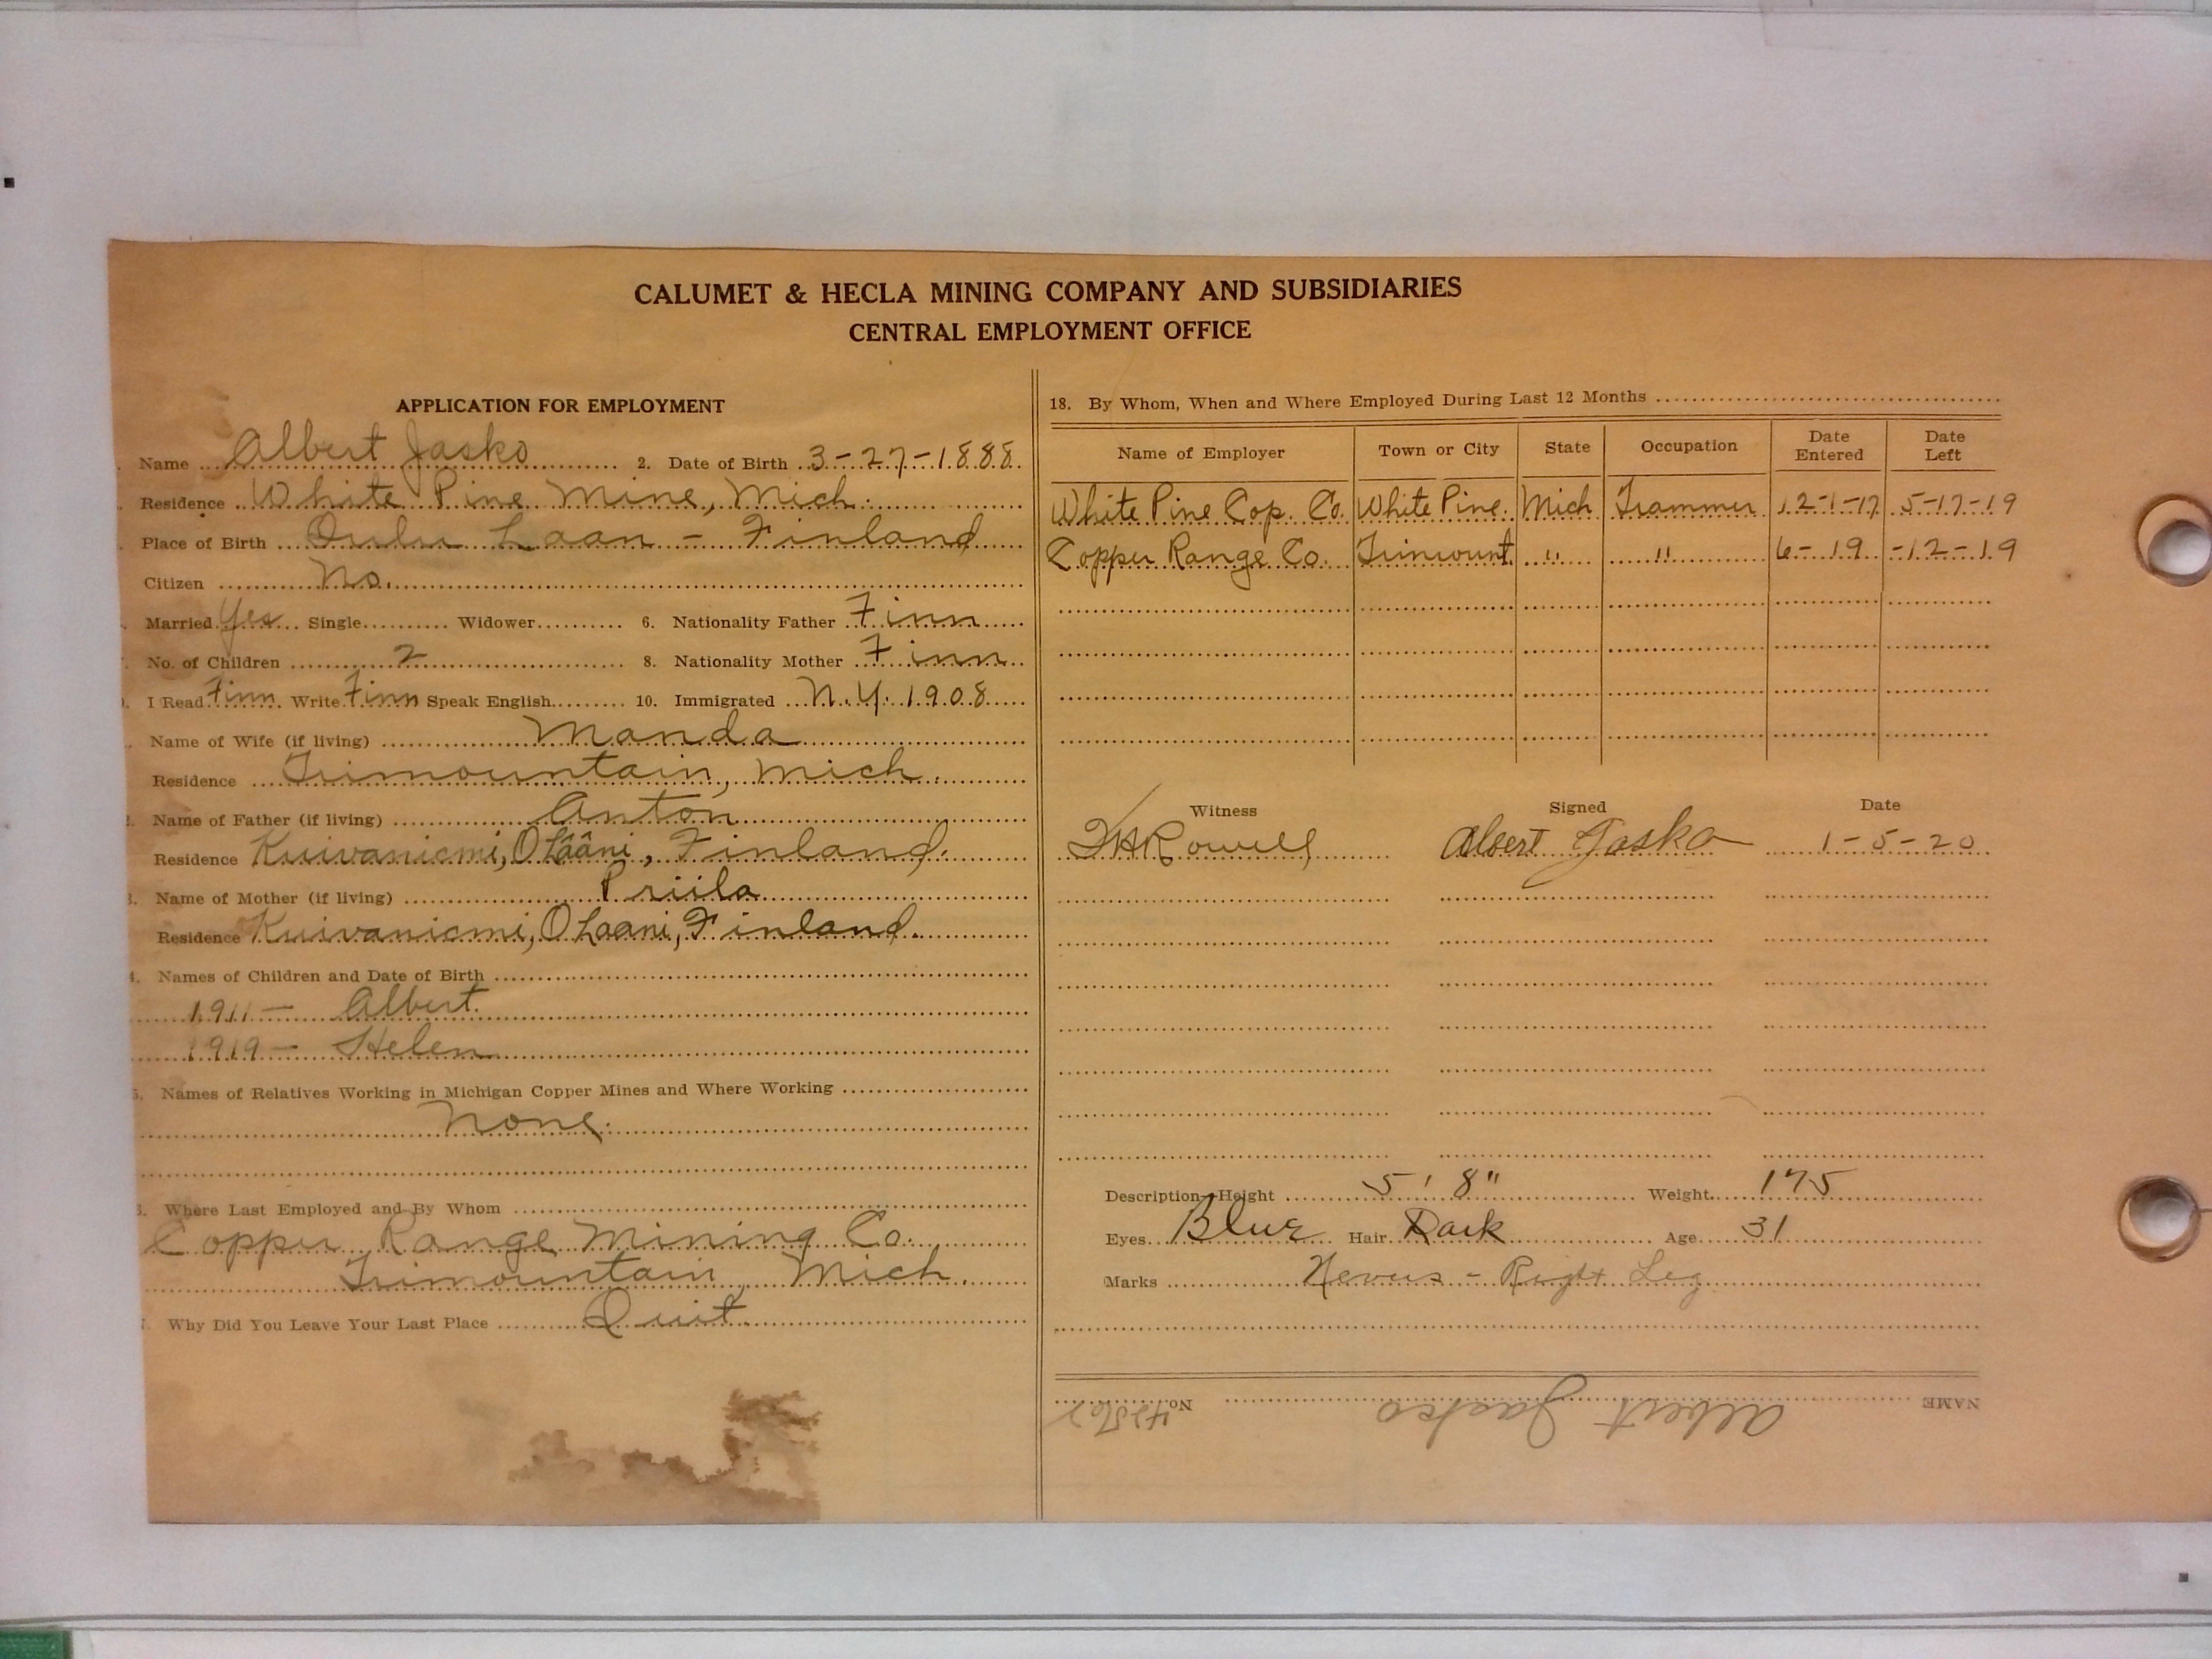 CALUMET & HECLA MINING COMPANY AND SUBSIDIARIES
CENTRAL EMPLOYMENT OFFICE
APPLICATION FOR EMPLOYMENT
Name Albert Jasko 2. Date of Birth 3-27-1888
Residence White Pine Mine, Mich.
Place of Birth Oulu Laan - Finland
Citizen No.
Married Yes Single Widower 6. Nationality Father Finn
No. of Children 2 8. Nationality Mother Finn
I Read Finn Write Finn Speak English 10. Immigrated N.Y. 1908
Name of Wife (if living) Manda
Residence Trimountain, Mich.
Name of Father (if living) Anton
Residence Kuivaniemi, O Lääni, Finland.
Name of Mother (if living) Priila
Residence Kuivaniemi, O Laani, Finland.
4. Names of Children and Date of Birth
1911 - Albert.
1919 - Helen
Names of Relatives Working in Michigan Copper Mines and Where Working
None.
Where Last Employed and By Whom
Copper Range Mining Co.
Trimountain, Mich.
Why Did You Leave Your Last Place Quit.
18. By Whom, When and Where Employed During Last 12 Months
Name of Employer Town or City State Occupation Date Entered Date Left
White Pine Cop. Co. White Pine. Mich Trammer 12-1-17 5-17-19
Copper Range Co. Trimount. " " 6-19 -12-19
Witness Signed Date
Rowell Albert Jasko 1-5-20
Description—Height 5' 8" Weight 175
Eyes Blue Hair Dark Age 31
Marks Nevus - Right Leg
NAME Albert Jasko No.